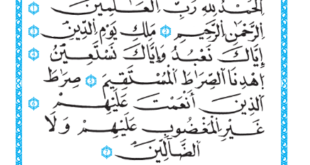 الْحَمْدُ لِلَّهِ رَبِّ الْعٰلَمِيْنَ ۝
الرَّحْمٰنِ الرَّحِيْمِ ۝ مٰلِكِ يَوْمِ الدِّيْنِ ۝
اِيَّاكَ نَعْبُدُ وَاِيَّاكَ نَسْتَعِيْنُ ۝
اِهْدِنَا الصِّرَاطَ الْمُسْتَقِيْمَ ۝ صِرَاطَ
الَّذِيْنَ اَنْعَمْتَ عَلَيْهِمْ ۝
غَيْرِ الْمَغْضُوْبِ عَلَيْهِمْ وَلَا
الضَّالِّيْنَ ۝